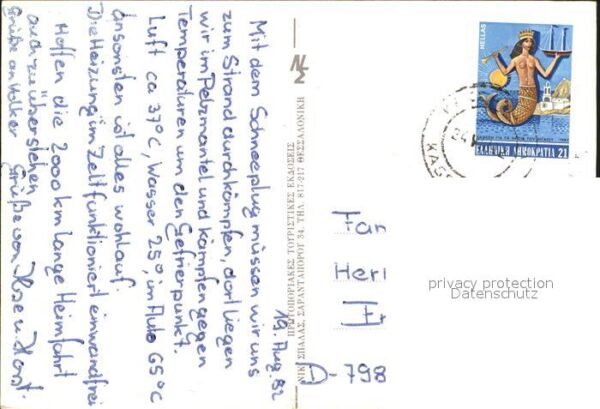 19. Aug. 82
Mit dem Schneepflug müssen wir uns
zum Strand durchkämpfen, dort liegen
wir im Pelzmantel und kämpfen gegen
Temperaturen um den Gefrierpunkt.
Luft ca 37°C, Wasser 25°, im Auto 65°C
Ansonsten ist alles wohlauf.
Die Heizung im Zelt funktioniert einwandfrei
Hoffen die 2000 km lange Heimfahrt
zu überstehen
Grüße an Volker Grüße von u. Horst.
ΠΡΩΤΟΠΟΡΙΑΚΕΣ ΤΟΥΡΙΣΤΙΚΕΣ ΕΚΔΟΣΕΙΣ
ΝΙΚ. ΣΠΑΛΑΣ, ΣΑΡΑΝΤΑΠΟΡΟΥ 34, ΤΗΛ. 817-217 ΘΕΣΣΑΛΟΝΙΚΗ
HELLAS
ΕΛΛΗΝΙΚΗ ΔΗΜΟΚΡΑΤΙΑ 21
Fam
Heri
D-798
privacy protection
Datenschutz